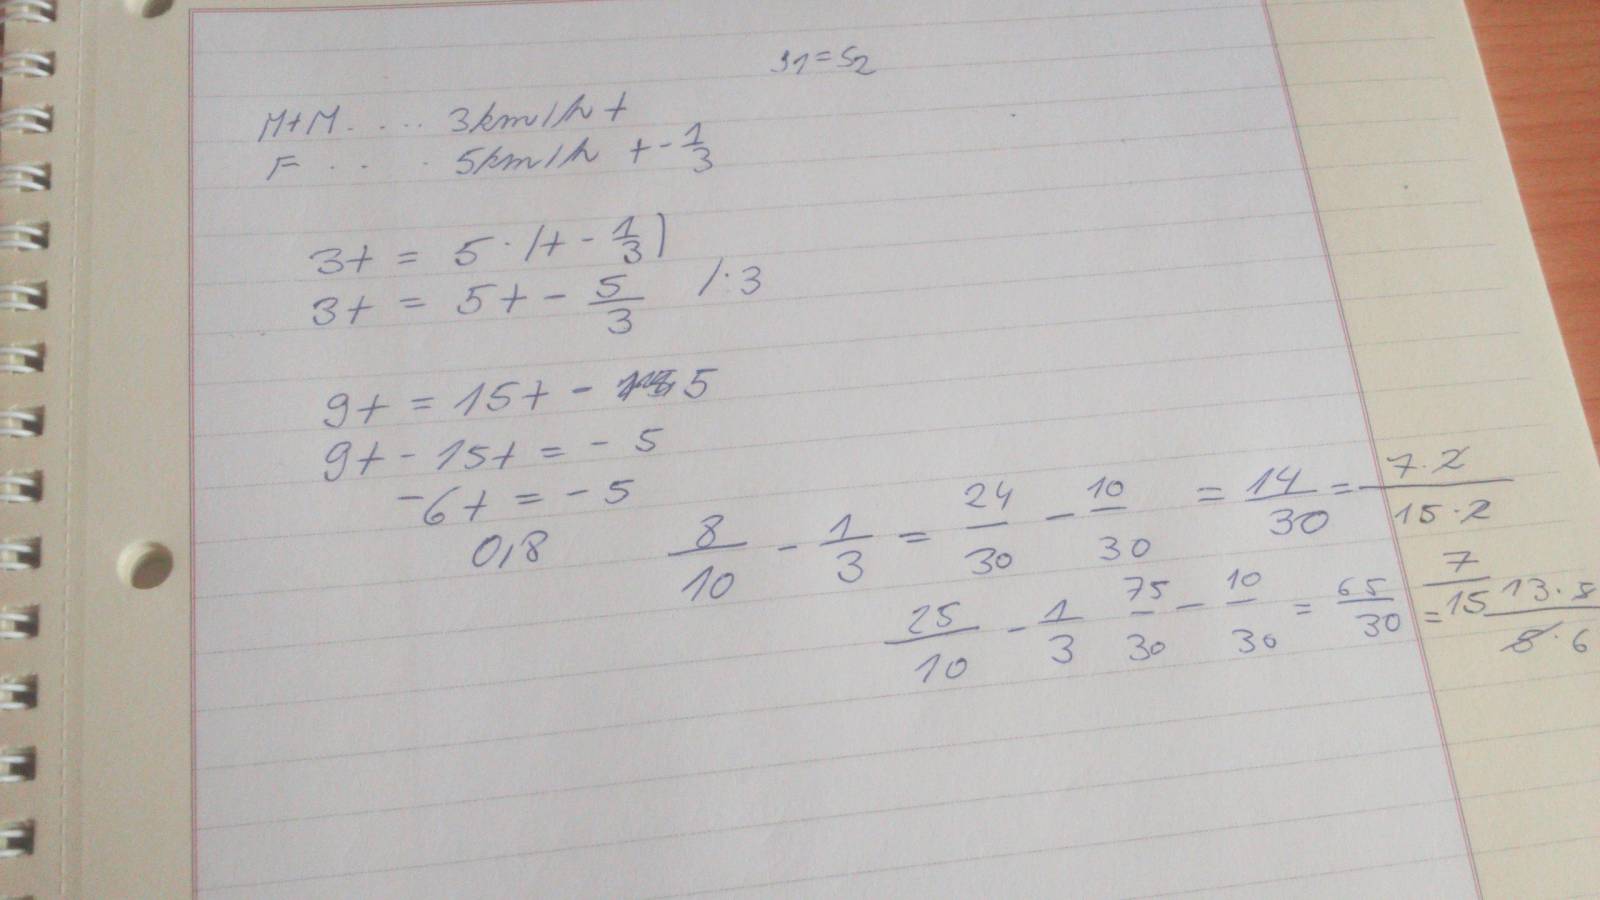 s1 = s2
M+M . . . . 3km/h t
F . . . 5km/h t - 1/3
3t = 5 · (t - 1/3)
3t = 5t - 5/3 /·3
9t = 15t - 5
9t - 15t = - 5
-6t = - 5
0,8
8/10 - 1/3 = 24/30 - 10/30 = 14/30 = 7·2/15·2
7/15
25/10 - 1/3 75/30 - 10/30 = 65/30 = 13·5/5·6